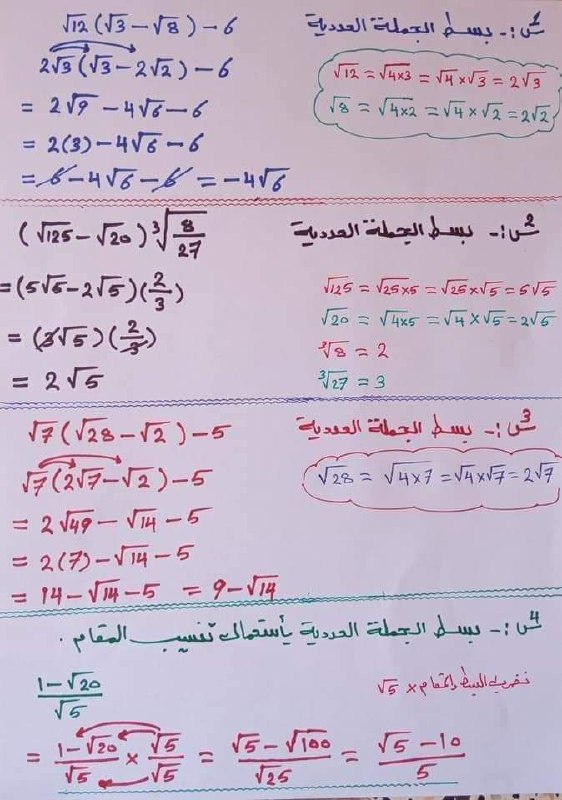 س1:- بسط الجملة العددية
√12 (√3 − √8) − 6
2√3 (√3 − 2√2) − 6
= 2√9 − 4√6 − 6
= 2(3) − 4√6 − 6
= 6 − 4√6 − 6 = −4√6
√12 = √4×3 = √4 × √3 = 2√3
√8 = √4×2 = √4 × √2 = 2√2
س2:- بسط الجملة العددية
(√125 − √20) ∛8/27
= (5√5 − 2√5) (2/3)
= (3√5) (2/3)
= 2√5
√125 = √25×5 = √25 × √5 = 5√5
√20 = √4×5 = √4 × √5 = 2√5
∛8 = 2
∛27 = 3
س3:- بسط الجملة العددية
√7 (√28 − √2) − 5
√7 (2√7 − √2) − 5
= 2√49 − √14 − 5
= 2(7) − √14 − 5
= 14 − √14 − 5 = 9 − √14
√28 = √4×7 = √4×√7 = 2√7
س4:- بسط الجملة العددية بأستعمال تنسيب المقام .
1−√20 / √5
نضرب البسط والمقام × √5
= 1−√20 / √5 × √5 / √5 = √5 − √100 / √25 = √5 − 10 / 5